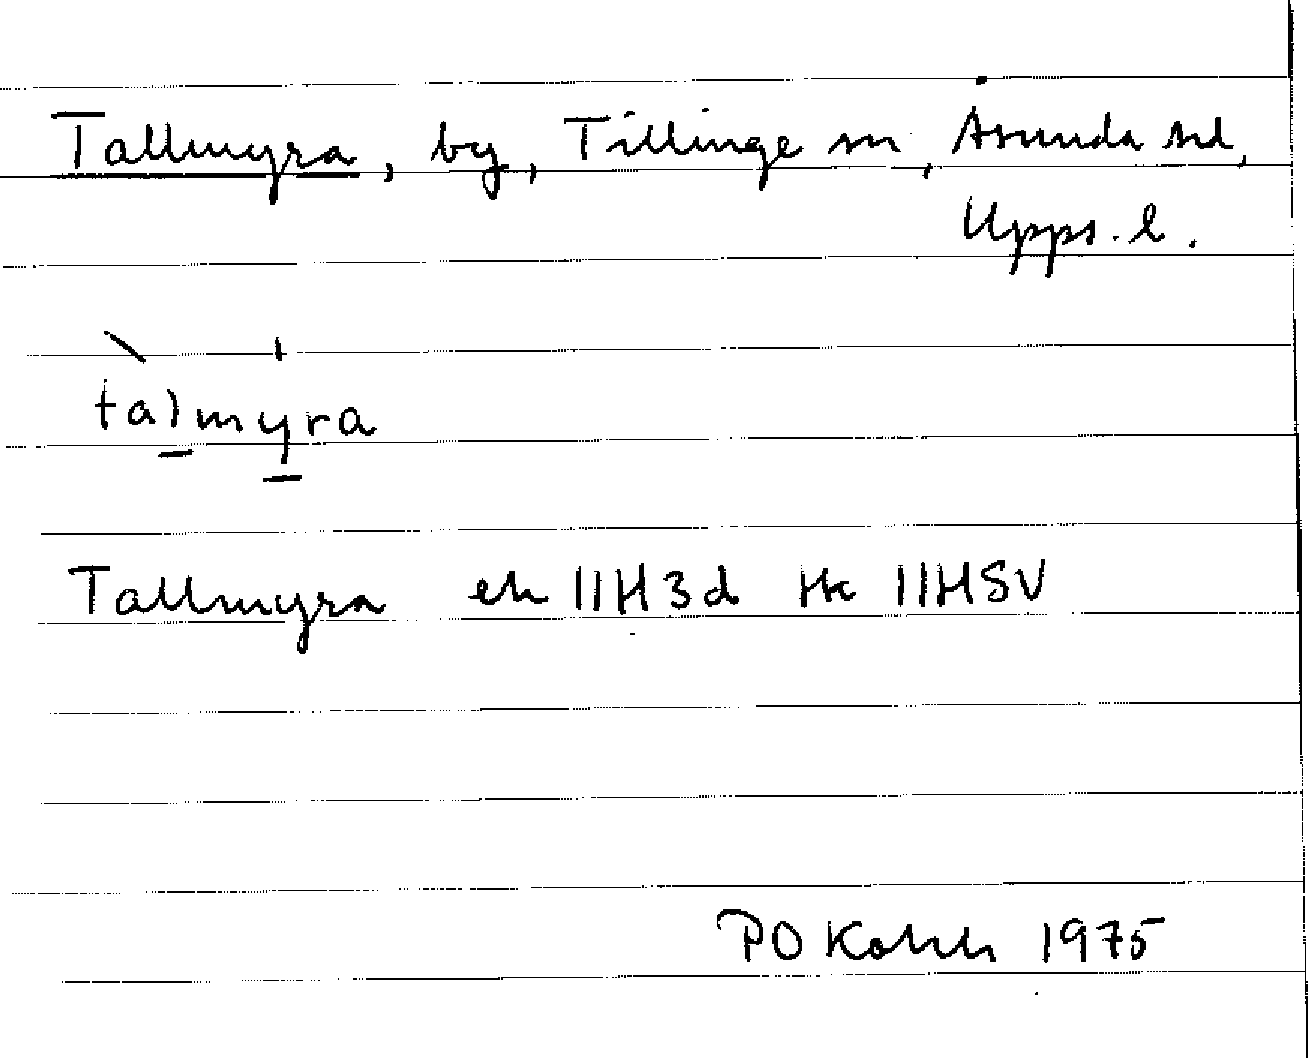 Tallmyra, by, Tillinge sn, Åsunda hd,
Upps. l.
talmyra
Tallmyra ek 11H3d hk 11HSV
PO 1975